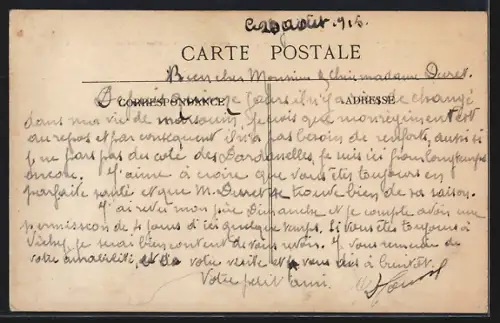 Ce 20 Août 1916.
CARTE POSTALE
Bien cher Monsieur & chère madame Duret.
Depuis que je jours il n'y a rien de changé
CORRESPONDANCE ADRESSE
dans ma vie de Je crois que mon régiment est
au repos et par conséquent il n'a pas besoin de renforts, aussi si
je ne pars pas du coté des Dardanelles, je suis ici pour longtemps
encore. J'aime à croire que vous êtes toujours en
parfaite santé et que M. Duret se trouve bien de sa saison.
J'ai revu mon père Dimanche et je compte avoir une
permission de 4 jours d'ici quelque temps. Si vous êtes toujours à
Vichy je serai bien content de vous revoir. Je vous remercie de
votre amabilité, et de votre visite et je vous dis à bientôt.
Votre petit ami.